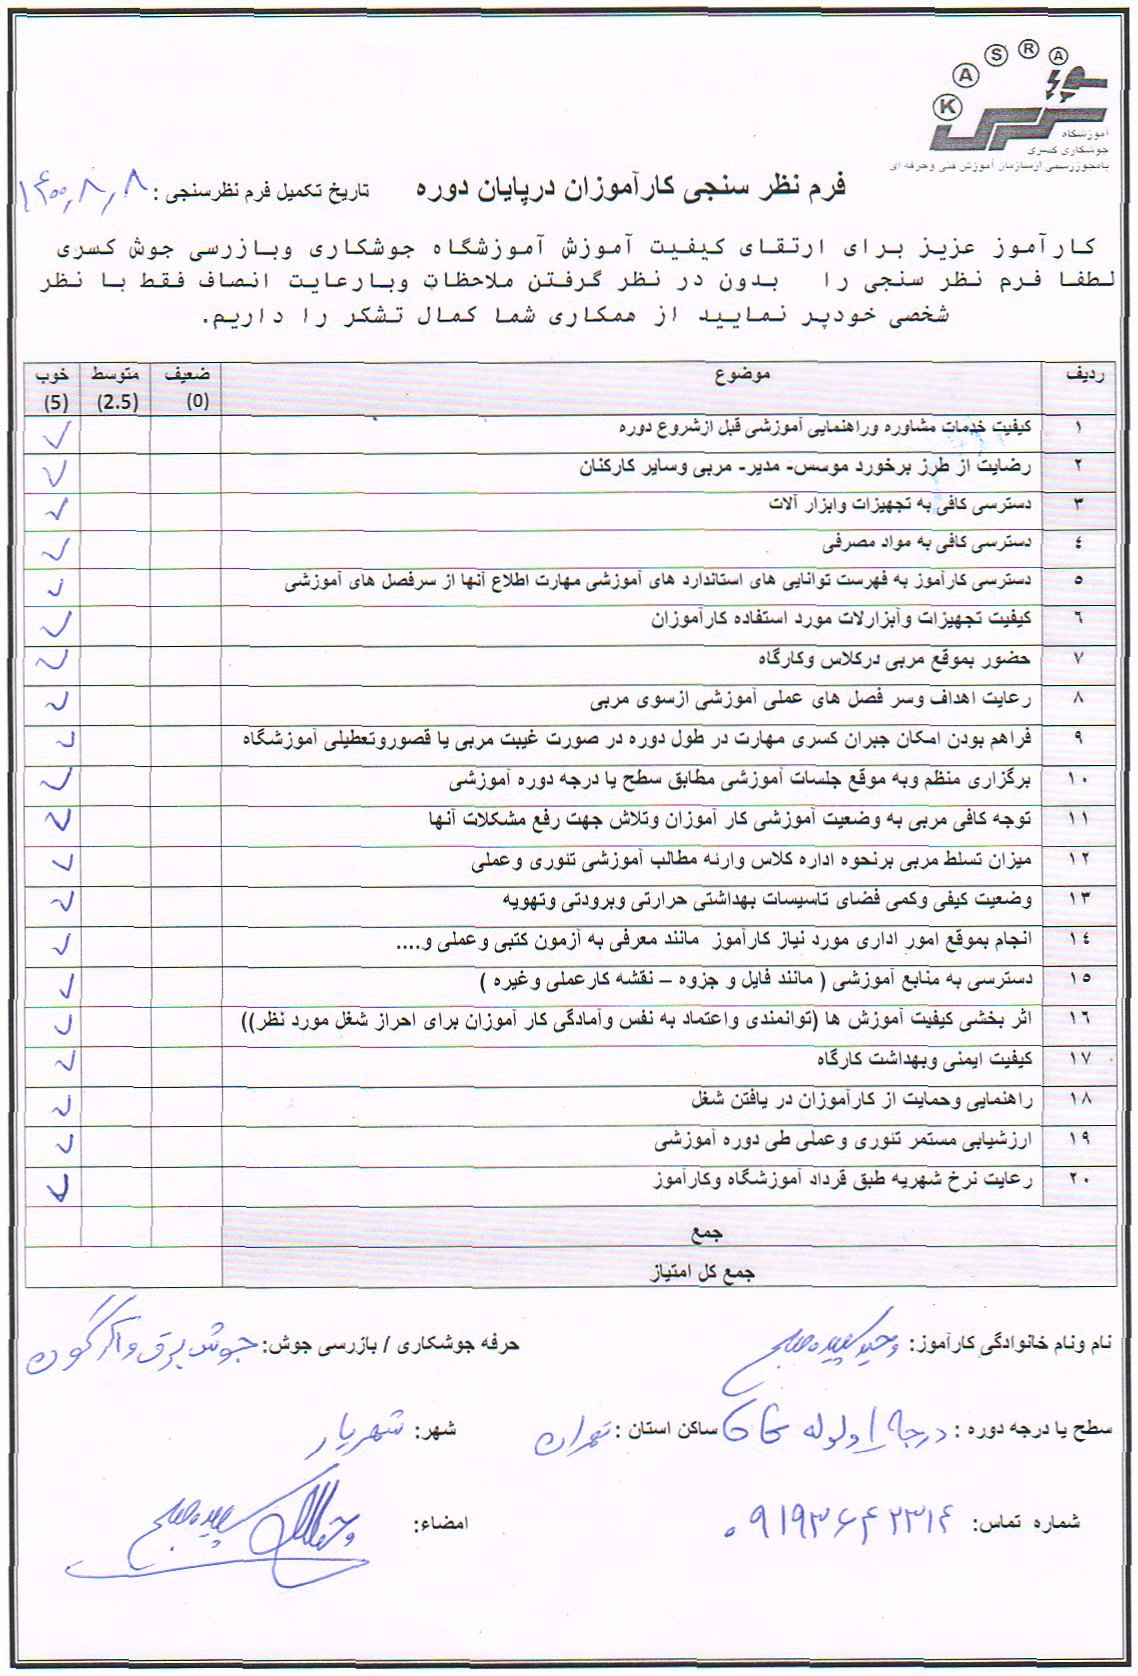 K A S R A
آموزشگاه
جوشکاری کسری
بامجوزرسمی ازسازمان آموزش فنی وحرفه ای
فرم نظر سنجی کارآموزان درپایان دوره تاریخ تکمیل فرم نظرسنجی : ۱۴۰۰٫۸٫۸
کارآموز عزیز برای ارتقای کیفیت آموزش آموزشگاه جوشکاری وبازرسی جوش کسری
لطفا فرم نظر سنجی را بدون در نظر گرفتن ملاحظات وبارعایت انصاف فقط با نظر
شخصی خودپر نمایید از همکاری شما کمال تشکر را داریم.
ردیف موضوع ضعیف (0) متوسط (2.5) خوب (5)
۱ کیفیت خدمات مشاوره وراهنمایی آموزشی قبل ازشروع دوره ✓
۲ رضایت از طرز برخورد موسس- مدیر- مربی وسایر کارکنان ✓
۳ دسترسی کافی به تجهیزات وابزار آلات ✓
٤ دسترسی کافی به مواد مصرفی ✓
٥ دسترسی کارآموز به فهرست توانایی های استاندارد های آموزشی مهارت اطلاع آنها از سرفصل های آموزشی ✓
٦ کیفیت تجهیزات وآبزارلات مورد استفاده کارآموزان ✓
۷ حضور بموقع مربی درکلاس وکارگاه ✓
۸ رعایت اهداف وسر فصل های عملی آموزشی ازسوی مربی ✓
۹ فراهم بودن امکان جبران کسری مهارت در طول دوره در صورت غیبت مربی یا قصوروتعطیلی آموزشگاه ✓
۱۰ برگزاری منظم وبه موقع جلسات آموزشی مطابق سطح یا درجه دوره آموزشی ✓
۱۱ توجه کافی مربی به وضعیت آموزشی کار آموزان وتلاش جهت رفع مشکلات آنها ✓
۱۲ میزان تسلط مربی برنحوه اداره کلاس وارئه مطالب آموزشی تئوری وعملی ✓
۱۳ وضعیت کیفی وکمی فضای تاسیسات بهداشتی حرارتی وبرودتی وتهویه ✓
۱٤ انجام بموقع امور اداری مورد نیاز کارآموز مانند معرفی به آزمون کتبی وعملی و.... ✓
۱٥ دسترسی به منابع آموزشی ( مانند فایل و جزوه – نقشه کارعملی وغیره ) ✓
۱٦ اثر بخشی کیفیت آموزش ها (توانمندی واعتماد به نفس وآمادگی کار آموزان برای احراز شغل مورد نظر)) ✓
۱۷ کیفیت ایمنی وبهداشت کارگاه ✓
۱۸ راهنمایی وحمایت از کارآموزان در یافتن شغل ✓
۱۹ ارزشیابی مستمر تئوری وعملی طی دوره آموزشی ✓
۲۰ رعایت نرخ شهریه طبق قرداد آموزشگاه وکارآموز ✓
جمع
جمع کل امتیاز
نام ونام خانوادگی کارآموز: وحید سپیده صلح حرفه جوشکاری / بازرسی جوش: جوش برق و آرگون
سطح یا درجه دوره : درجه ۱ و لوله ساکن استان : تهران شهر: شهریار
شماره تماس: ۰۹۱۹۳۶۴۲۳۱۴ امضاء: